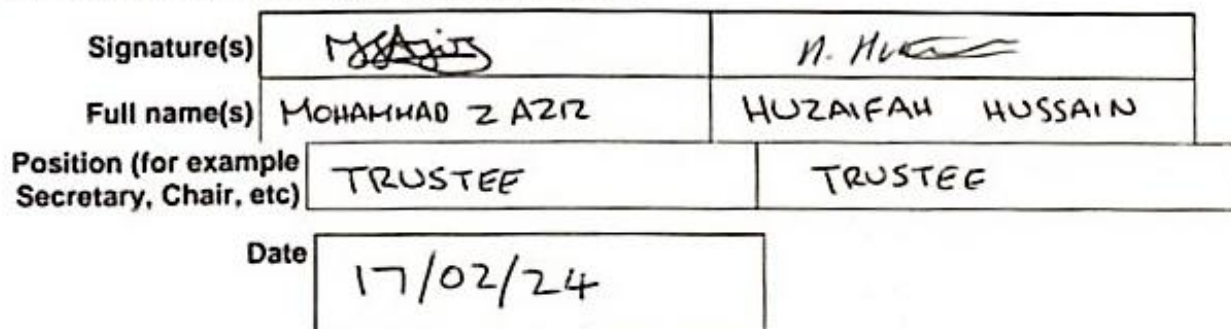 Signature(s) H. Hu
Full name(s) MOHAMMAD Z AZIZ HUZAIFAH HUSSAIN
Position (for example
Secretary, Chair, etc) TRUSTEE TRUSTEE
Date 17/02/24